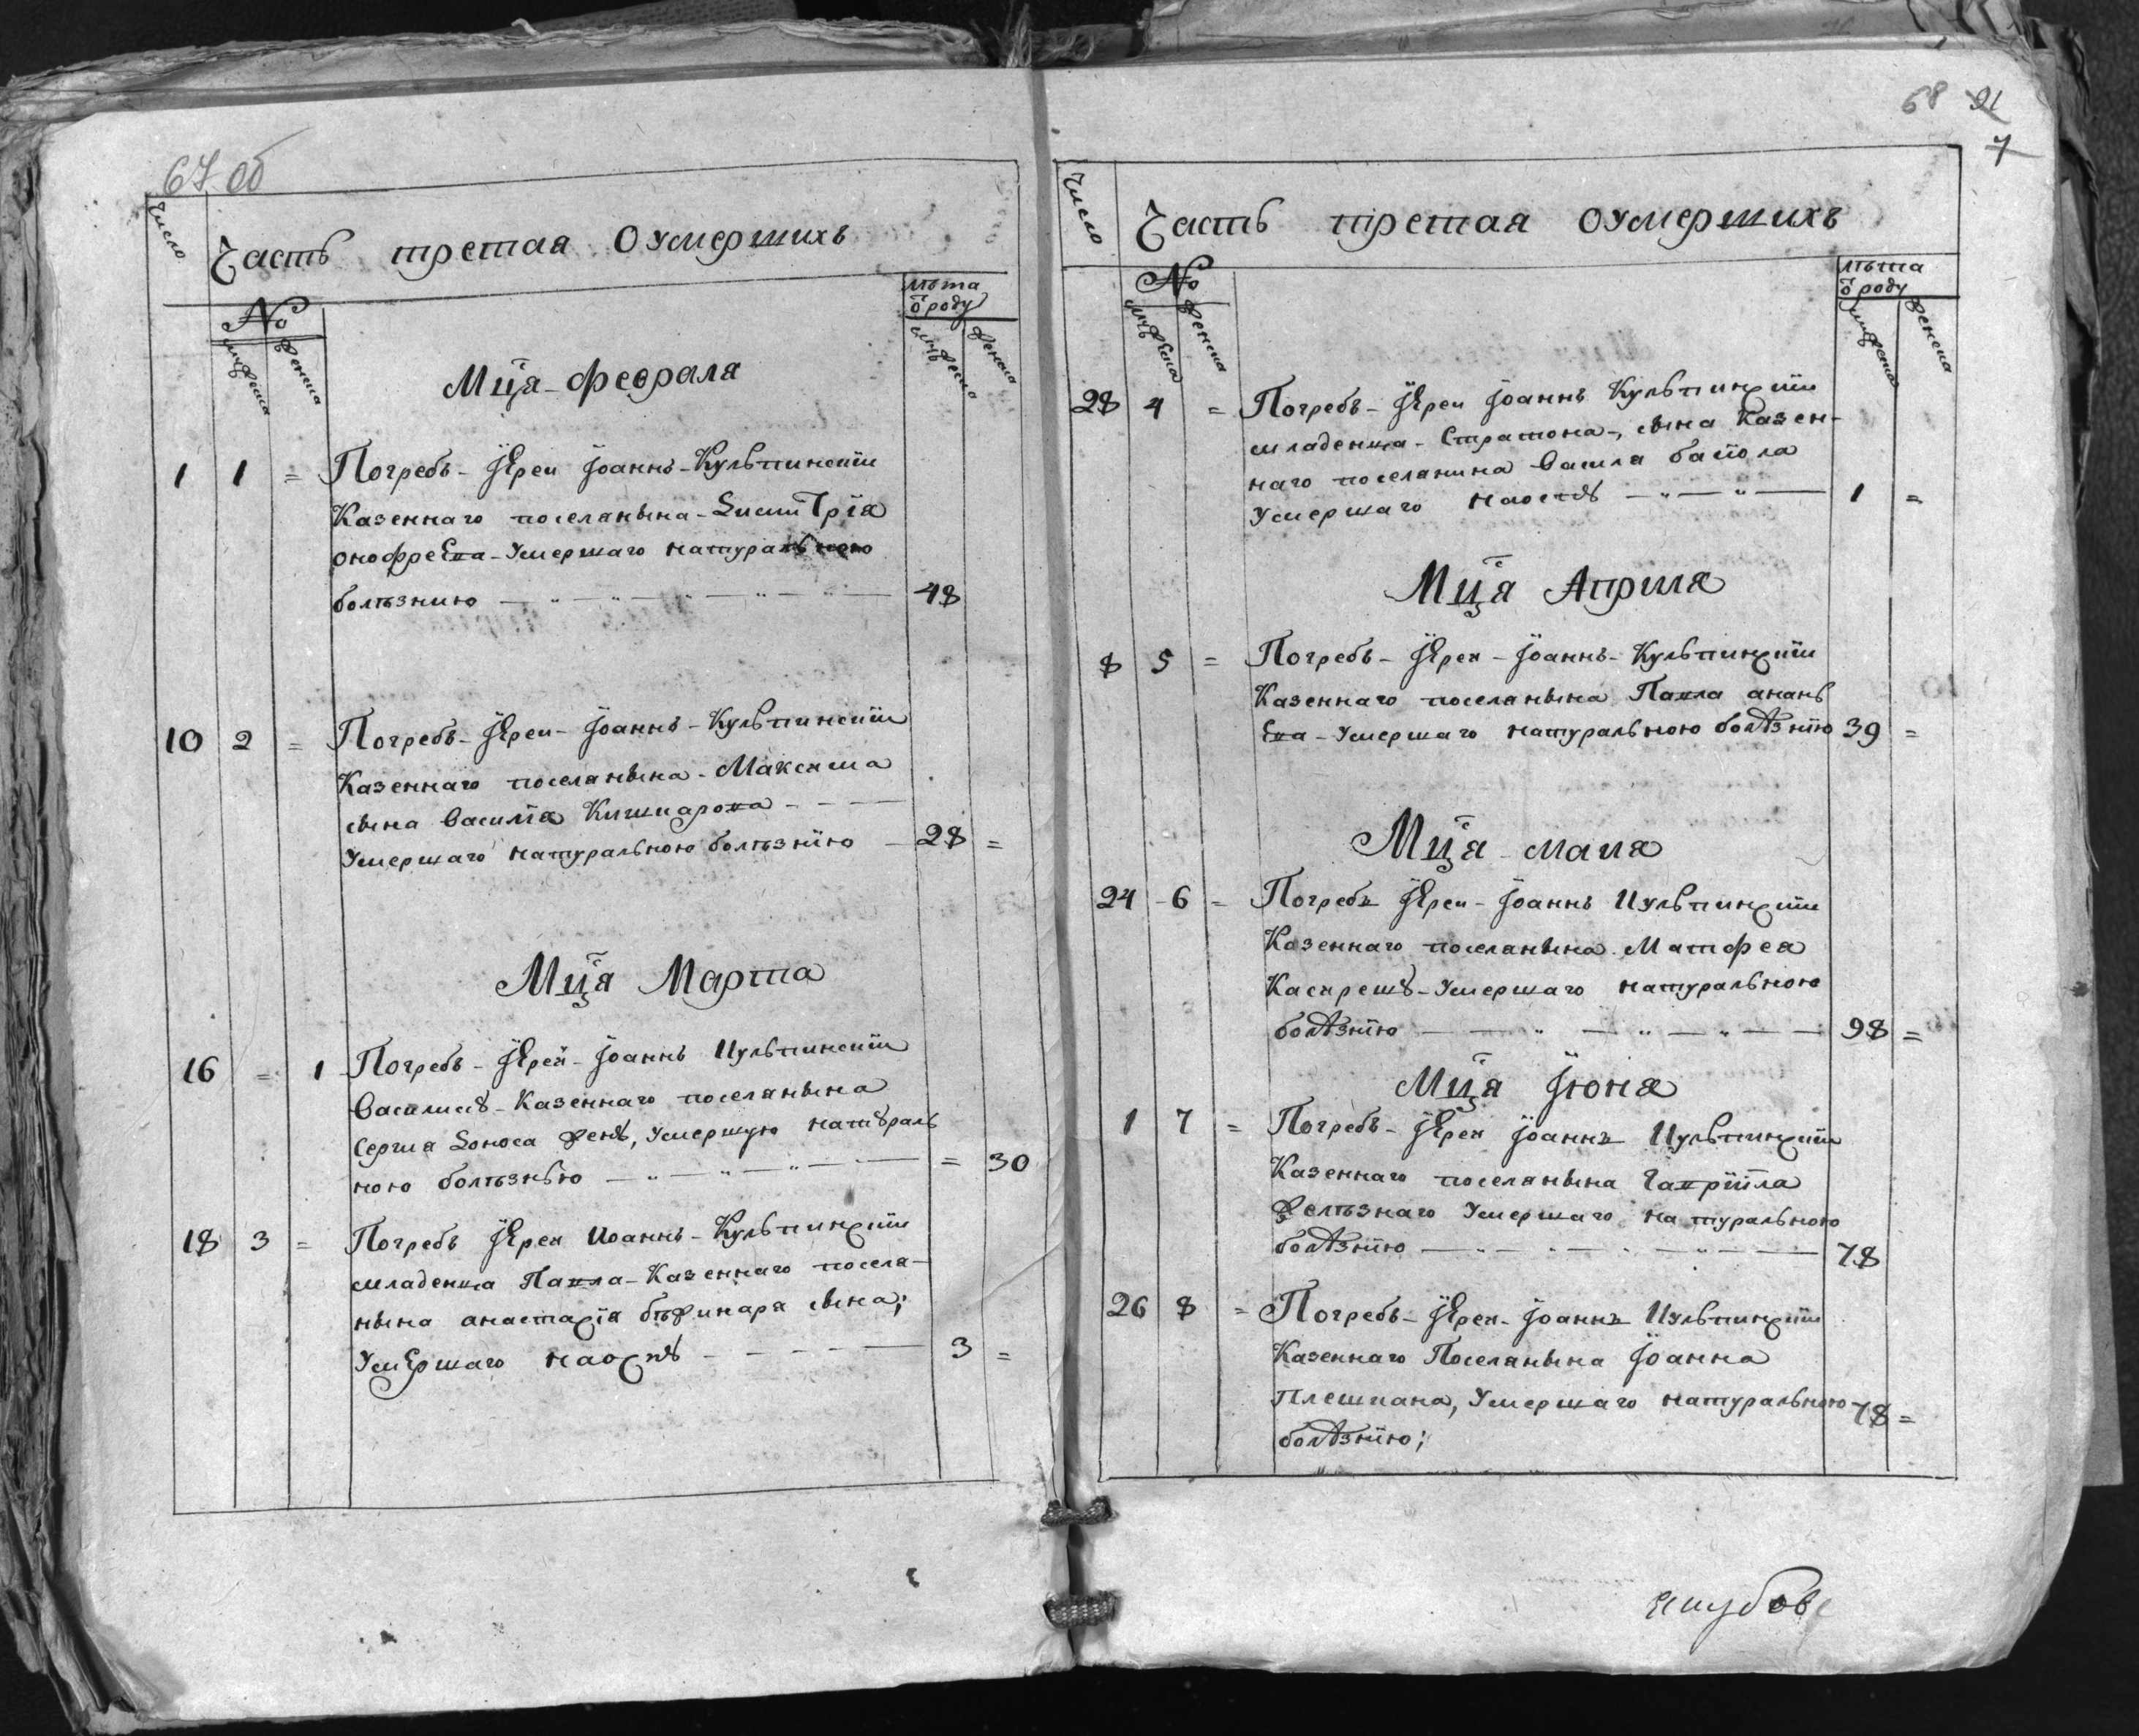 67 об
Число
Часть третая О умершихъ
№
лѣта
ѿ роду
Мца Феврала
1 1 = Погребъ Іерей Іоаннъ Кульпинскїй
Казеннаго поселанына Димитрїа
онофреева Умершаго натуральною
болѣзнию 48
10 2 = Погребъ Іерей Іоаннъ Кульпинскїй
Казеннаго поселанына Максима
сына Василїа Кишкарова
Умершаго натуральною болѣзнїю 28 =
Мца Марта
16 = 1 Погребъ Іерей Іоаннъ Кульпинскїй
Казеннаго поселанына
Сергиа жену, Умершую натꙋраль
ною болѣзнью = 30
18 3 = Погребъ Іерей Иоаннъ Кульпинскїй
младенца Павла Казеннаго посела-
нына анастасїа бѣжинара сына;
Умершаго наоспꙋ 3 =
68 91
7
Число
Часть третая О умершихъ
№
лѣта
ѿ роду
28 4 = Погребъ Іерей Іоаннъ Кульпинскїй
младенца Стратона, сына Казен-
наго поселанина Васила
Умершаго наоспꙋ 1 =
Мца Априла
8 5 = Погребъ Іерей Іоаннъ Кульпинскїй
Казеннаго поселанына Павла анань
ева Умершаго натуральною болѣзнїю 39 =
Мца Маиа
24 6 = Погребъ Іерей Іоаннъ Кульпинскїй
Казеннаго поселанына Матфеа
Умершаго натуральною
болѣзнїю 98 =
Мца Їюна
1 7 = Погребъ Іерей Іоаннъ Кульпинскїй
Казеннаго поселанына Гаврїила
Желѣзнаго Умершаго натуральною
болѣзнїю 78
26 8 = Погребъ Іерей Іоаннъ Кульпинскїй
Казеннаго Поселанына Іоанна
Плешкана, Умершаго натуральною 78 =
болѣзнїю;